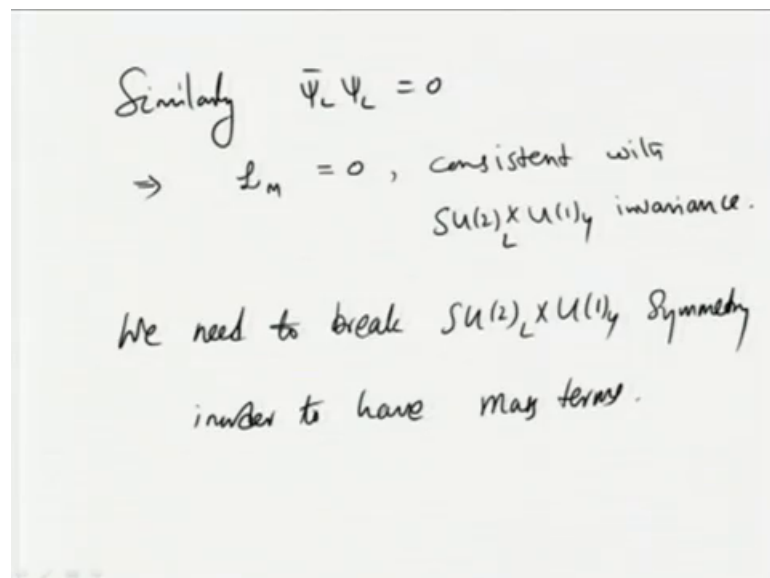 Similarly ψ̄_L ψ_L = 0
⇒ ℒ_M = 0, consistent with
SU(2)_L × U(1)_Y invariance.
We need to break SU(2)_L × U(1)_Y Symmetry
inorder to have mass terms.